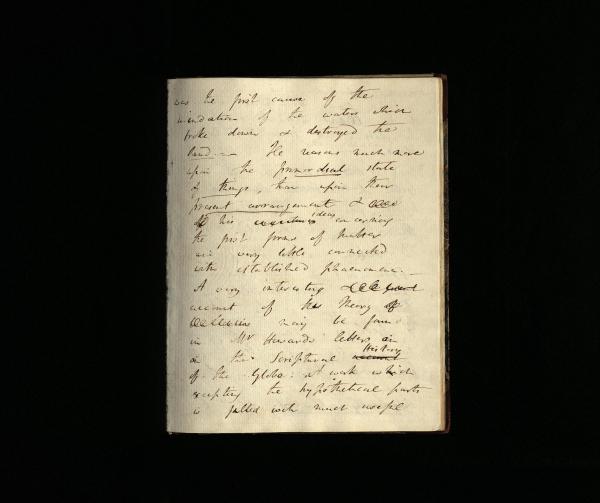 was the first cause of the
inundation of the waters which
broke down & destroyed the
land. — He reasons much more
upon the primordial state
of things, than upon their
present arrangement &
his ideas concerning
the first forms of matter
are very little connected
with established phaenomena. —
A very interesting &
account of the Theory of
may be found
in Mr Howards letters
on the Scriptural History
of the Globe: a work which
excepting the hypothetical parts
is filled with much useful